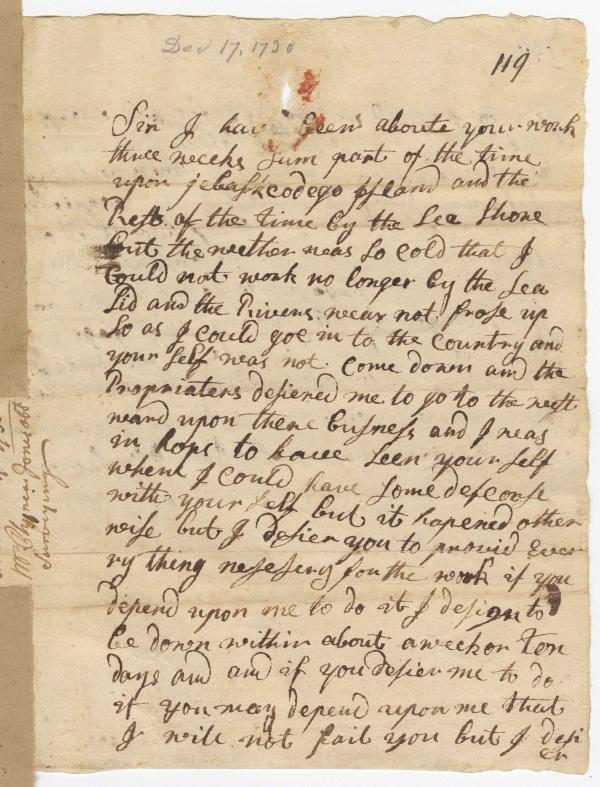 Dec 17, 1730
119
Sir I have been aboute your work
three weecks sum part of the time
upon jebaskcodego Island and the
Rest of the time by the Sea Shore
but the wether was so cold that I
Could not work no longer by the Sea
Sid and the Rivers wear not frose up
So as I could goe in to the Country and
your self was not Come down and the
Propriaters desiered me to go to the west
ward upon there busness and I was
in hops to have seen your self
where I could have some descouse
with your self but it hapened other
wise but I desier you to provid Ever
ry thing nessesery for the work if you
depend upon me to do it I design to
be down within about a weeck or Ten
days and and if you desier me to do
it you may depend upon me that
I will not fail you but I desi
er
Mr Benjamin Jones abt
Surveying